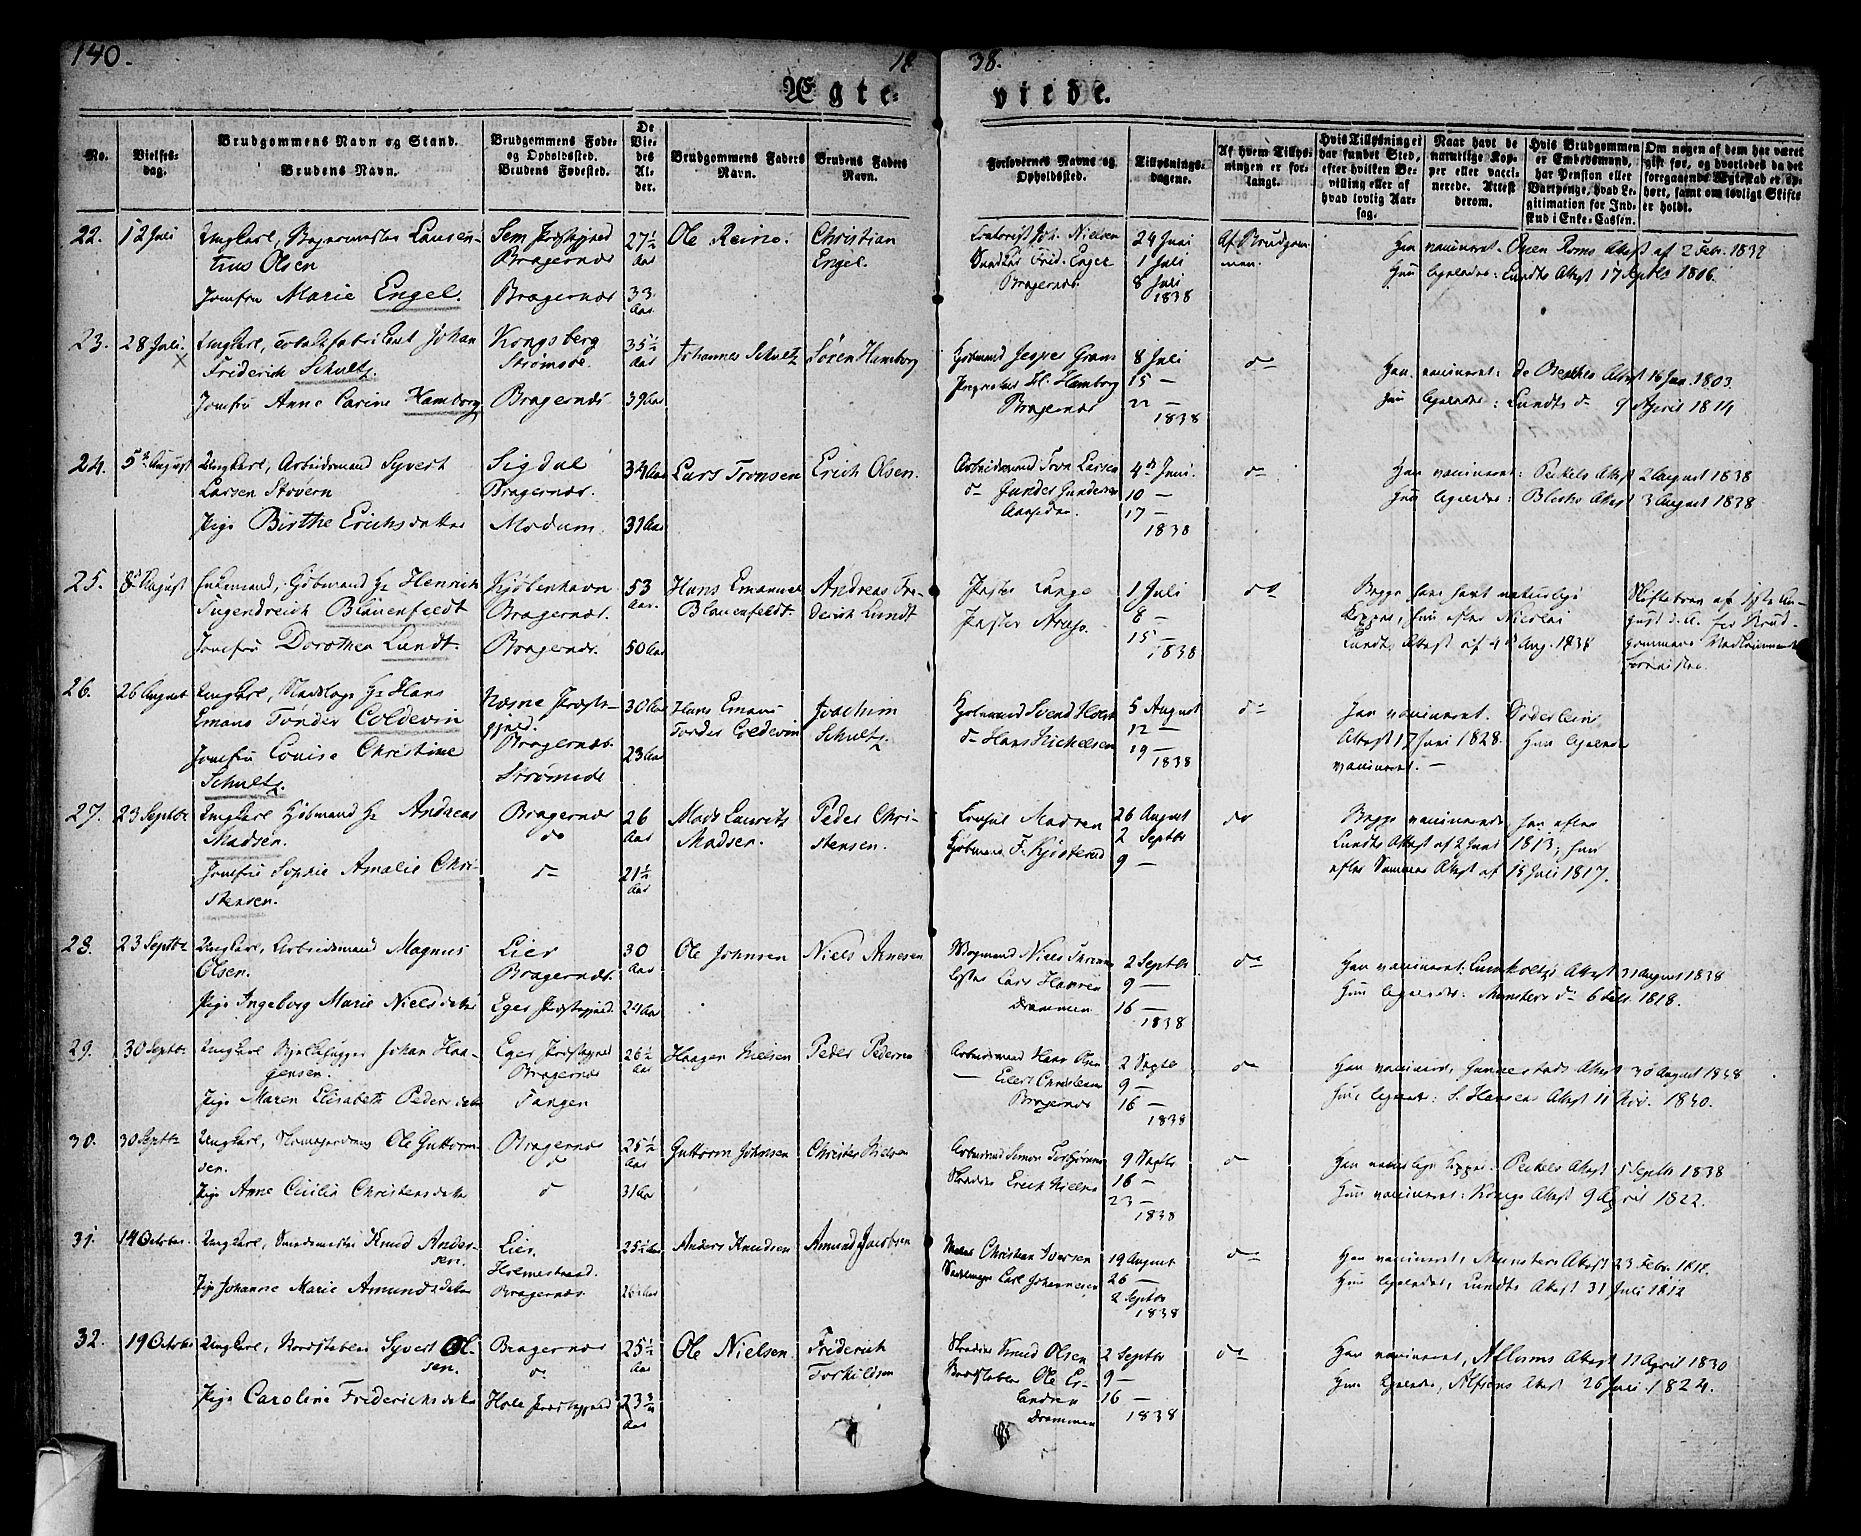 140.
18
38.
Ægte-
viede.
No.
Vielses-
dag.
Brudgommens Navn og Stand.
Brudens Navn.
Brudgommens Føde-
og Opholdssted.
Brudens Fødested.
De
Vie-
des
Al-
der.
Brudgommens Faders
Navn.
Brudens Faders
Navn.
Forlovernes Navne og
Opholdssted.
Tillysnings-
dagene.
Af hvem Tillys-
ningen er for-
langt.
Hvis Tillysning ei
har fundet Sted,
efter hvilken Be-
villing eller af
hvad lovlig Aar-
sag.
Naar havt de
naturlige Kop-
per eller vacci-
nerede. Attest
derom.
Hvis Brudgommen
er Embedsmand,
har Pension eller
Vartpenge, hvad Le-
gitimation for Ind-
skud i Enke-Cassen.
Om nogen af dem har været
gift før, og hvorledes da det
foregaaende Ægteskab er op-
hørt, samt om lovligt Skifte
er holdt.
22. 12 Juli
Ungkarl, Bagermester Lauren-
tius Olsen
Jomfru Marie Engel.
Sem Præstegjeld
Bragernæs
Bragernæs
27½
Aar
33
Aar
Ole Reine.
Christian
Engel.
Joh. Nielsen
Frid. Engel
Bragernæs.
24 Juni
1 Juli
8 Juli
1838
Af Brudgom-
men.
Han vaccineret: Roms Attest af 2 Febr. 1832
Hun ligeledes: Lundts Attest 17 Septbr 1806.
23. 28 Juli
Ungkarl, Tobaksfabrikant Johan
Friderich Schultz.
Jomfru Anne Carine Hamborg
Kongsberg
Strømsøe.
Bragernæs
35½
Aar
39 Aar
Johannes Schultz
Søren Hamborg
Kjøbmand Jesper Gram
H. Hamborg
Bragernæs
8 Juli
15 —
22 —
1838
do
Han vaccineret: de Beckes Attest 16 Jan. 1803.
Hun ligeledes: Lundts do 9 April 1814
24. 5te August
Ungkarl, Arbeidsmand Syvert
Larsen Støvern
Pige Birthe Erichsdatter
Sigdal
Bragernæs.
Modum.
34 Aar
31 Aar
Lars Tronsen
Erich Olsen.
Arbeidsmand Tron Larsen
do Gunder Gundersen
4de Juni
10 —
17 —
1838
do
Han vaccineret: Peckels Attest 2 August 1838
Hun ligeledes: Blichs Attest 3 August 1838
25. 8de August
Enkemand, Kjøbmand Hr Henrich
Tugendreich Blauenfeldt
Jomfru Dorothea Lundt.
Kjøbenhavn
Bragernæs.
Bragernæs.
53
Aar.
50 Aar
Hans Emanuel
Blauenfeldt.
Andreas Fre-
derich Lundt
Pastor Lange
Pastor Arup.
1 Juli
8 —
15 —
1838
do
Begge have havt naturlige
Kopper, hun efter Nicolai
Lundts Attest af 4de Aug. 1838
Skiftebrev af 1ste Au-
gust d.A. for Brud-
gommens Vedkommende
forevistes.
26. 26 August
Ungkarl, Hr Hans
Emans Tønder Coldevin
Jomfru Louise Christine
Schultz.
Næsne Præste-
gjeld.
Bragernæs.
Strømsøe
30 Aar
23 Aar
Hans Emans
Tønder Coldevin
Joachim
Schultz
Kjøbmand Svend Holst
do Hans Kickelsen
5 August
12 —
19 —
1838
do
Han vaccineret. Søderleins
Attest 17 Juni 1828. Hun ligeledes
vaccineret. —
27. 23 Septbr
Ungkarl Kjøbmand Hr Andreas
Madsen.
Jomfru Sophie Amalie Chri-
stensen.
Bragernæs
do
do
26
Aar
21½
Aar
Mads Lauritz
Madsen.
Peder Chri-
stensen.
Consul Madsen
Kjøbmand F. Kjøsterud
26 August
2 Septbr
9 —
do
Begge vaccinerede han efter
Lundts Attest af 2 Juni 1813; hun
efter Sammes Attest af 15 Juli 1817.
28. 23 Septbr
Ungkarl, Arbeidsmand Magnus
Olsen.
Pige Ingeborg Marie Nielsdatter
Lier
Bragernæs.
Eger Præstegjeld.
30
Aar
24 Aar
Ole Johnsen
Niels Arnesen
Lars Hansen
Drammen
2 Septbr
9 —
16 —
1838
do
Han vaccineret: Lumholtz's Attest 31 August 1838
Hun ligeledes: Munsters do 6 Febr. 1818.
29. 30 Septbr
Ungkarl Johan Haa-
gensen.
Pige Maren Elisabeth Pedersdatter
Eger Præstegjeld
Bragernæs
Tangen
26½
Aar
Haagen Nielsen
Peder Pedersen
Arbeidsmand Hans Olsen
— Eilert Christensen
Bragernæs
2 Septbr
9 —
16 —
1838
do
Han vaccineret, Gundestads Attest 30 August 1838
Hun ligeledes: S. Hansens Attest 11 Nov. 1830.
30. 30 Septbr
Ungkarl, Ole Guttorm-
sen.
Pige Anne Cicilia Christensdatter
Bragernæs
do
do
25½
Aar
31 Aar
Guttorm Johnsen
Christen Nielsen
Arbeidsmand Simon
Erich Nielsen
9 Septbr
16 —
23 —
1838
do
Han naturlige Kopper. Peckels Attest 5 Septbr 1838
Hun vaccineret: Konigs Attest 9 April 1822.
31. 14 October.
Ungkarl, Knud Ander-
sen.
Pige Johanne Marie Amundsdatter
Lier.
Holmestrand.
Bragernæs
25½ Aar
26½ Aar
Anders Knudsen
Amund Jacobsen
Christian Iversen
Carl Johannesen
19 August
26 —
2 Septbr
1838
do
Han vaccineret, Munsters Attest 23 Febr. 1818.
Hun ligeledes, Lundts Attest 31 Juli 1812
32. 19 October
Ungkarl, Syvert Ol-
sen.
Pige Caroline Frederichsdatter
Bragernæs
do.
Hole Præstegjeld
25½
Aar
23¾
Aar
Ole Nielsen
Friderich
Torkildsen
Knud Olsen
Ole Er-
landsen
Drammen
2 Septbr
9 —
16 —
1838
do
Han vaccineret, Attest 11 April 1830
Hun ligeledes, Alfsens Attest 26 Juni 1824.